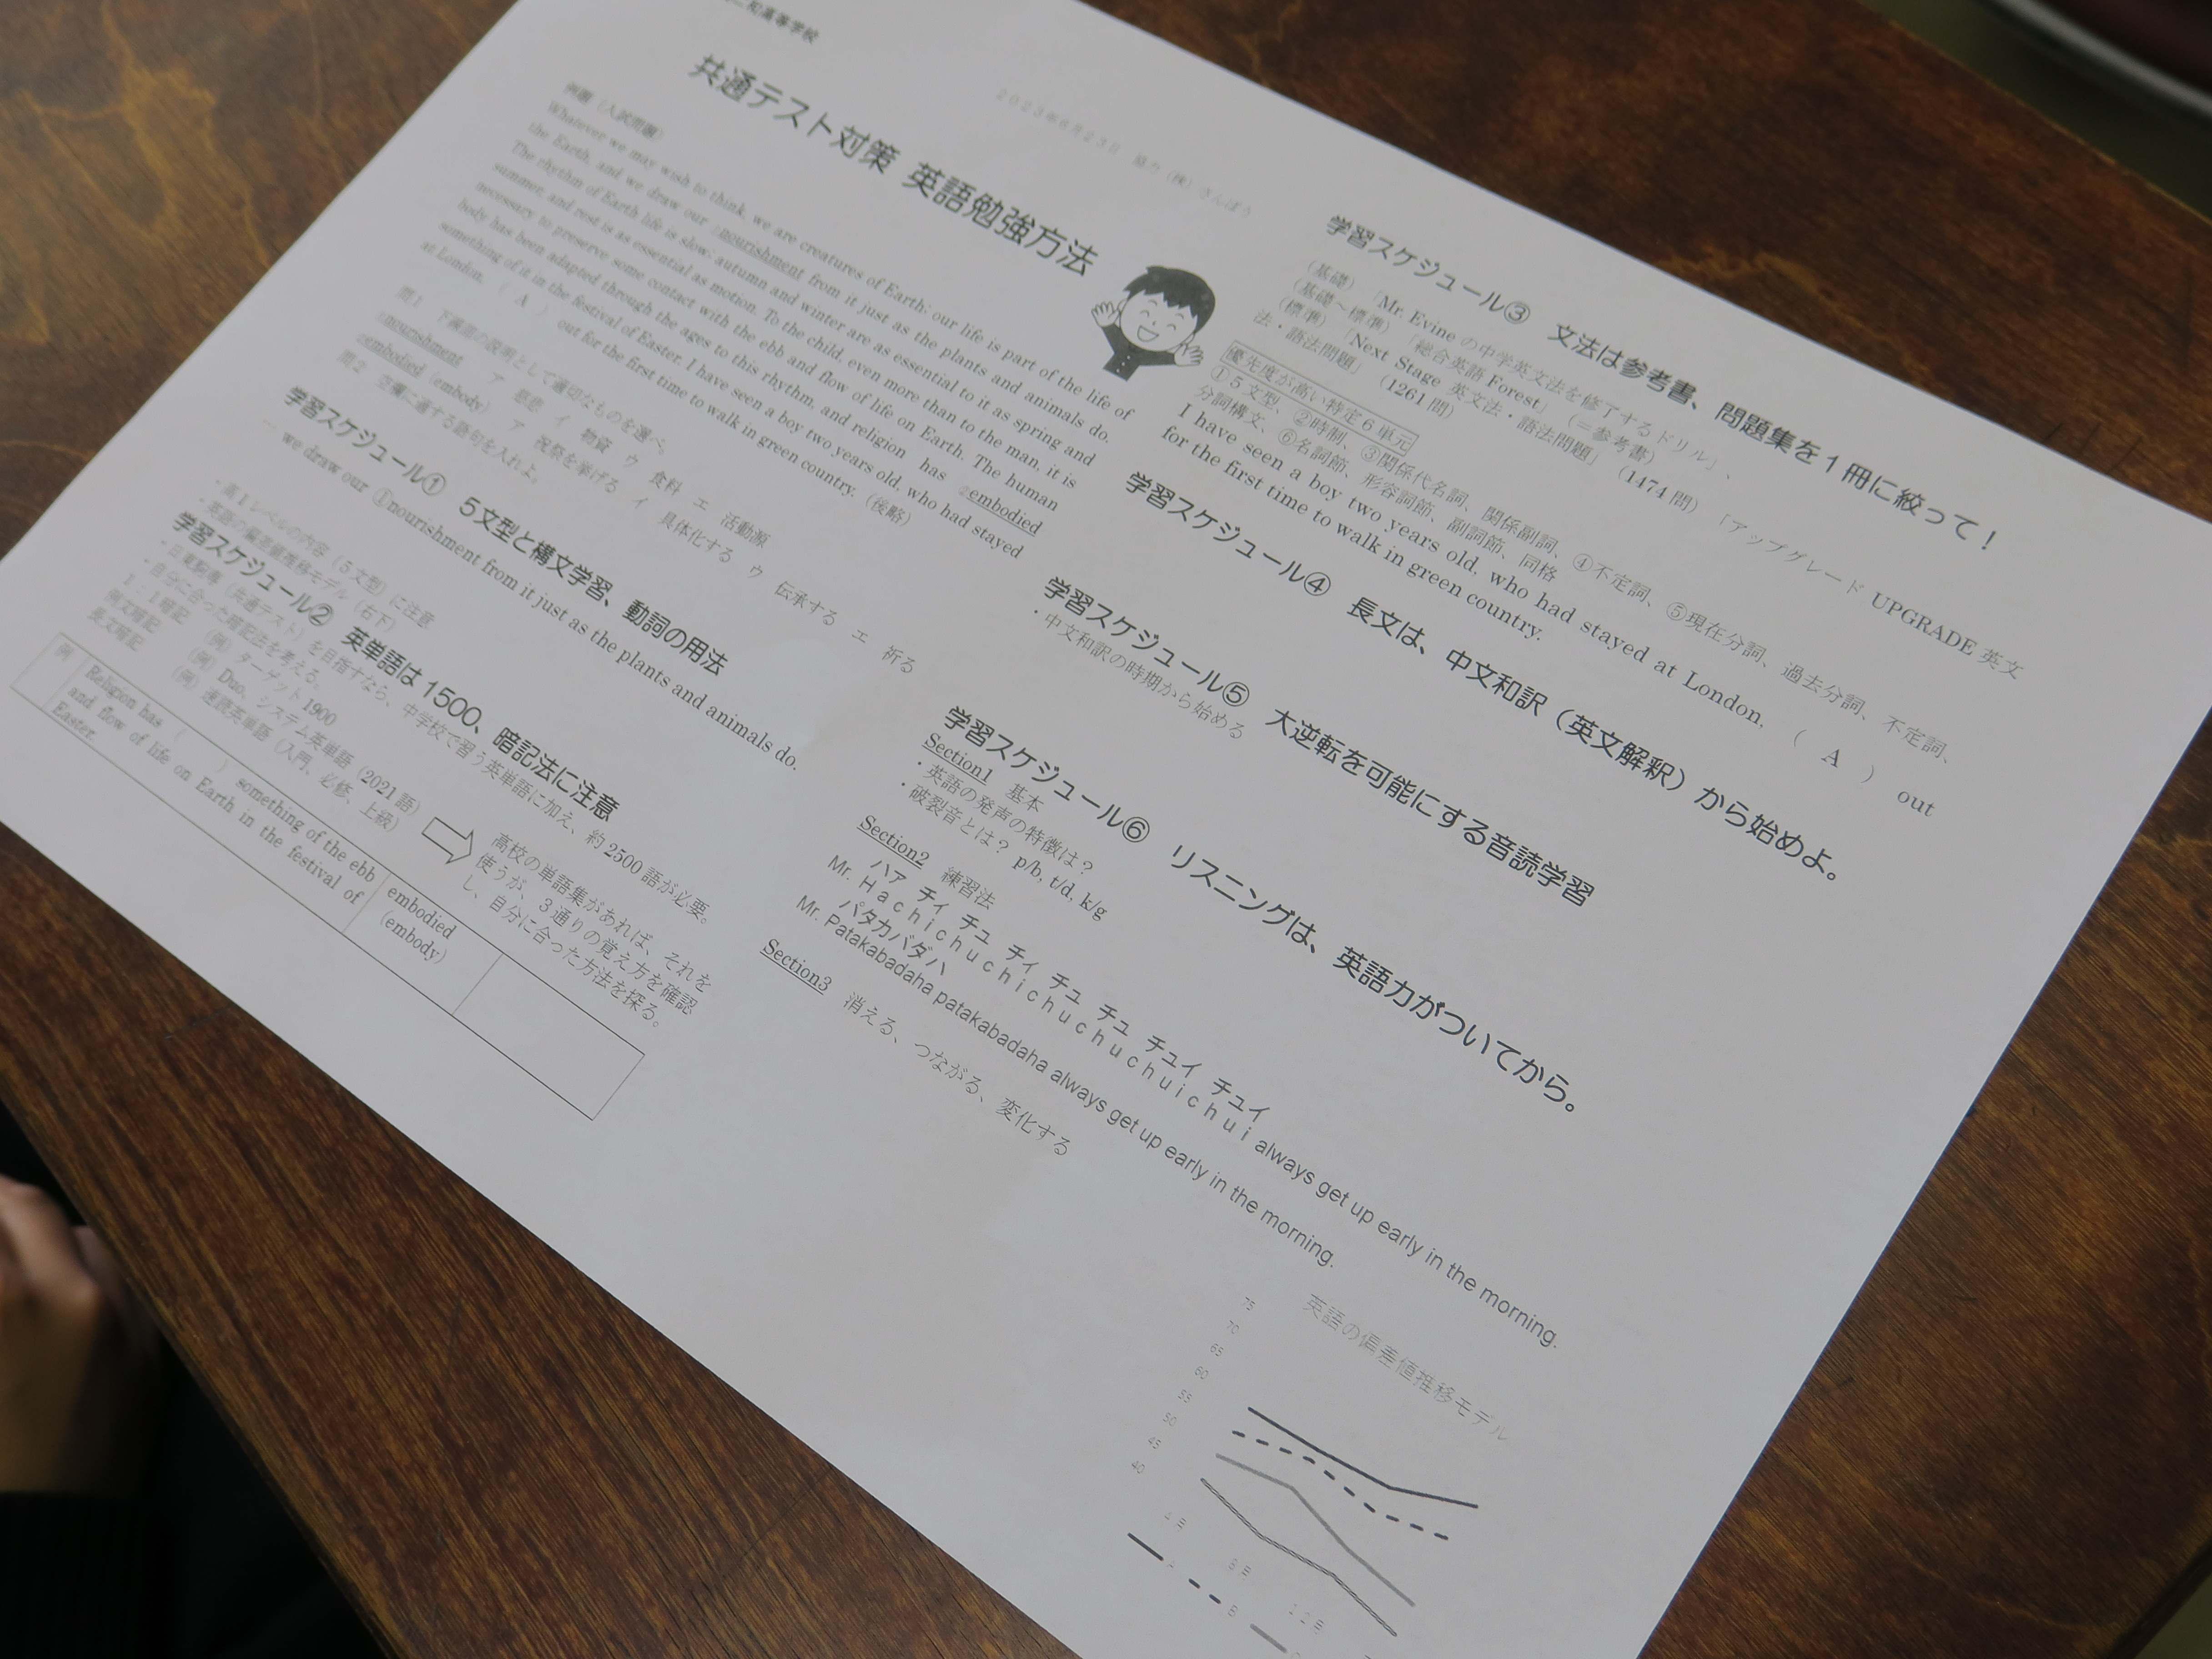 和高等学校
2023年6月23日 協力（株）さんぽう
共通テスト対策 英語勉強方法
例題（入試問題）
Whatever we may wish to think, we are creatures of Earth; our life is part of the life of
the Earth, and we draw our ①nourishment from it just as the plants and animals do.
The rhythm of Earth life is slow; autumn and winter are as essential to it as spring and
summer, and rest is as essential as motion. To the child, even more than to the man, it is
necessary to preserve some contact with the ebb and flow of life on Earth. The human
body has been adapted through the ages to this rhythm, and religion has ②embodied
something of it in the festival of Easter. I have seen a boy two years old, who had stayed
at London, （ A ） out for the first time to walk in green country.（後略）
問1 下線部の説明として適切なものを選べ。
①nourishment ア 慈悲 イ 物資 ウ 食料 エ 活動源
②embodied (embody) ア 祝祭を挙げる イ 具体化する ウ 伝承する エ 祈る
問2 空欄に適する語句を入れよ。
学習スケジュール① 5文型と構文学習、動詞の用法
we draw our ①nourishment from it just as the plants and animals do.
・高1レベルの内容（5文型）に注意
・英語の偏差値推移モデル（右下）
学習スケジュール② 英単語は1500、暗記法に注意
・日東駒専（共通テスト）を目指すなら、中学校で習う英単語に加え、約2500語が必要。
・自分に合った暗記法を考える。
1：1暗記 （例）ターゲット1900
例文暗記 （例）Duo、システム英単語（2021語）
長文暗記 （例）速読英単語（入門、必修、上級）
高校の単語集があれば、それを
使うが、3通りの覚え方を確認
し、自分に合った方法を探る。
例 Religion has （ ） something of the ebb
and flow of life on Earth in the festival of
Easter.
embodied
(embody)
学習スケジュール③ 文法は参考書、問題集を1冊に絞って！
（基礎）「Mr. Evine の中学英文法を修了するドリル」、
（基礎～標準）「総合英語 Forest」（＝参考書）
（標準）「Next Stage 英文法・語法問題」（1474問）「アップグレード UPGRADE 英文
法・語法問題」（1261問）
優先度が高い特定6単元
①5文型、②時制、③関係代名詞、関係副詞、④不定詞、⑤現在分詞、過去分詞、不定詞、
分詞構文、⑥名詞節、形容詞節、副詞節、同格
I have seen a boy two years old, who had stayed at London, （ A ） out
for the first time to walk in green country.
学習スケジュール④ 長文は、中文和訳（英文解釈）から始めよ。
学習スケジュール⑤ 大逆転を可能にする音読学習
・中文和訳の時期から始める
学習スケジュール⑥ リスニングは、英語力がついてから。
Section1 基本
・英語の発声の特徴は？
・破裂音とは？ p/b, t/d, k/g
Section2 練習法
ハァ チィ チュ チィ チュ チュ チュイ チュイ
Mr. Hachichuchichuchuchuichui always get up early in the morning.
パタカバダハ
Mr. Patakabadaha patakabadaha always get up early in the morning.
Section3 消える、つながる、変化する
英語の偏差値推移モデル
75
70
65
60
55
50
45
40
4月
8月
12月
A
B